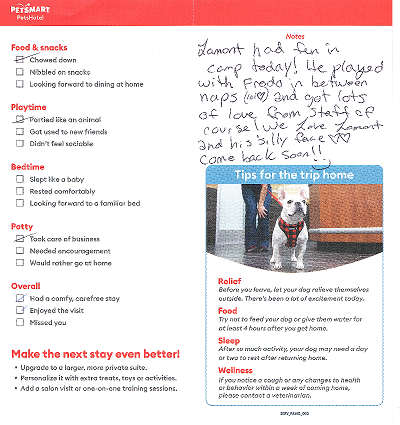 PETSMART
PetsHotel
Food & snacks
Chowed down
Nibbled on snacks
Looking forward to dining at home
Playtime
Partied like an animal
Got used to new friends
Didn't feel sociable
Bedtime
Slept like a baby
Rested comfortably
Looking forward to a familiar bed
Potty
Took care of business
Needed encouragement
Would rather go at home
Overall
Had a comfy, carefree stay
Enjoyed the visit
Missed you
Make the next stay even better!
• Upgrade to a larger, more private suite.
• Personalize it with extra treats, toys or activities.
• Add a salon visit or one-on-one training sessions.
Notes
Lamont had fun in
camp today! He played
with Frodo in between
naps and got lots
of love from staff of
course! We Love Lamont
and his silly face
Come back Soon!!
Tips for the trip home
Relief
Before you leave, let your dog relieve themselves
outside. There's been a lot of excitement today.
Food
Try not to feed your dog or give them water for
at least 4 hours after you get home.
Sleep
After so much activity, your dog may need a day
or two to rest after returning home.
Wellness
If you notice a cough or any changes to health
or behavior within a week of coming home,
please contact a veterinarian.